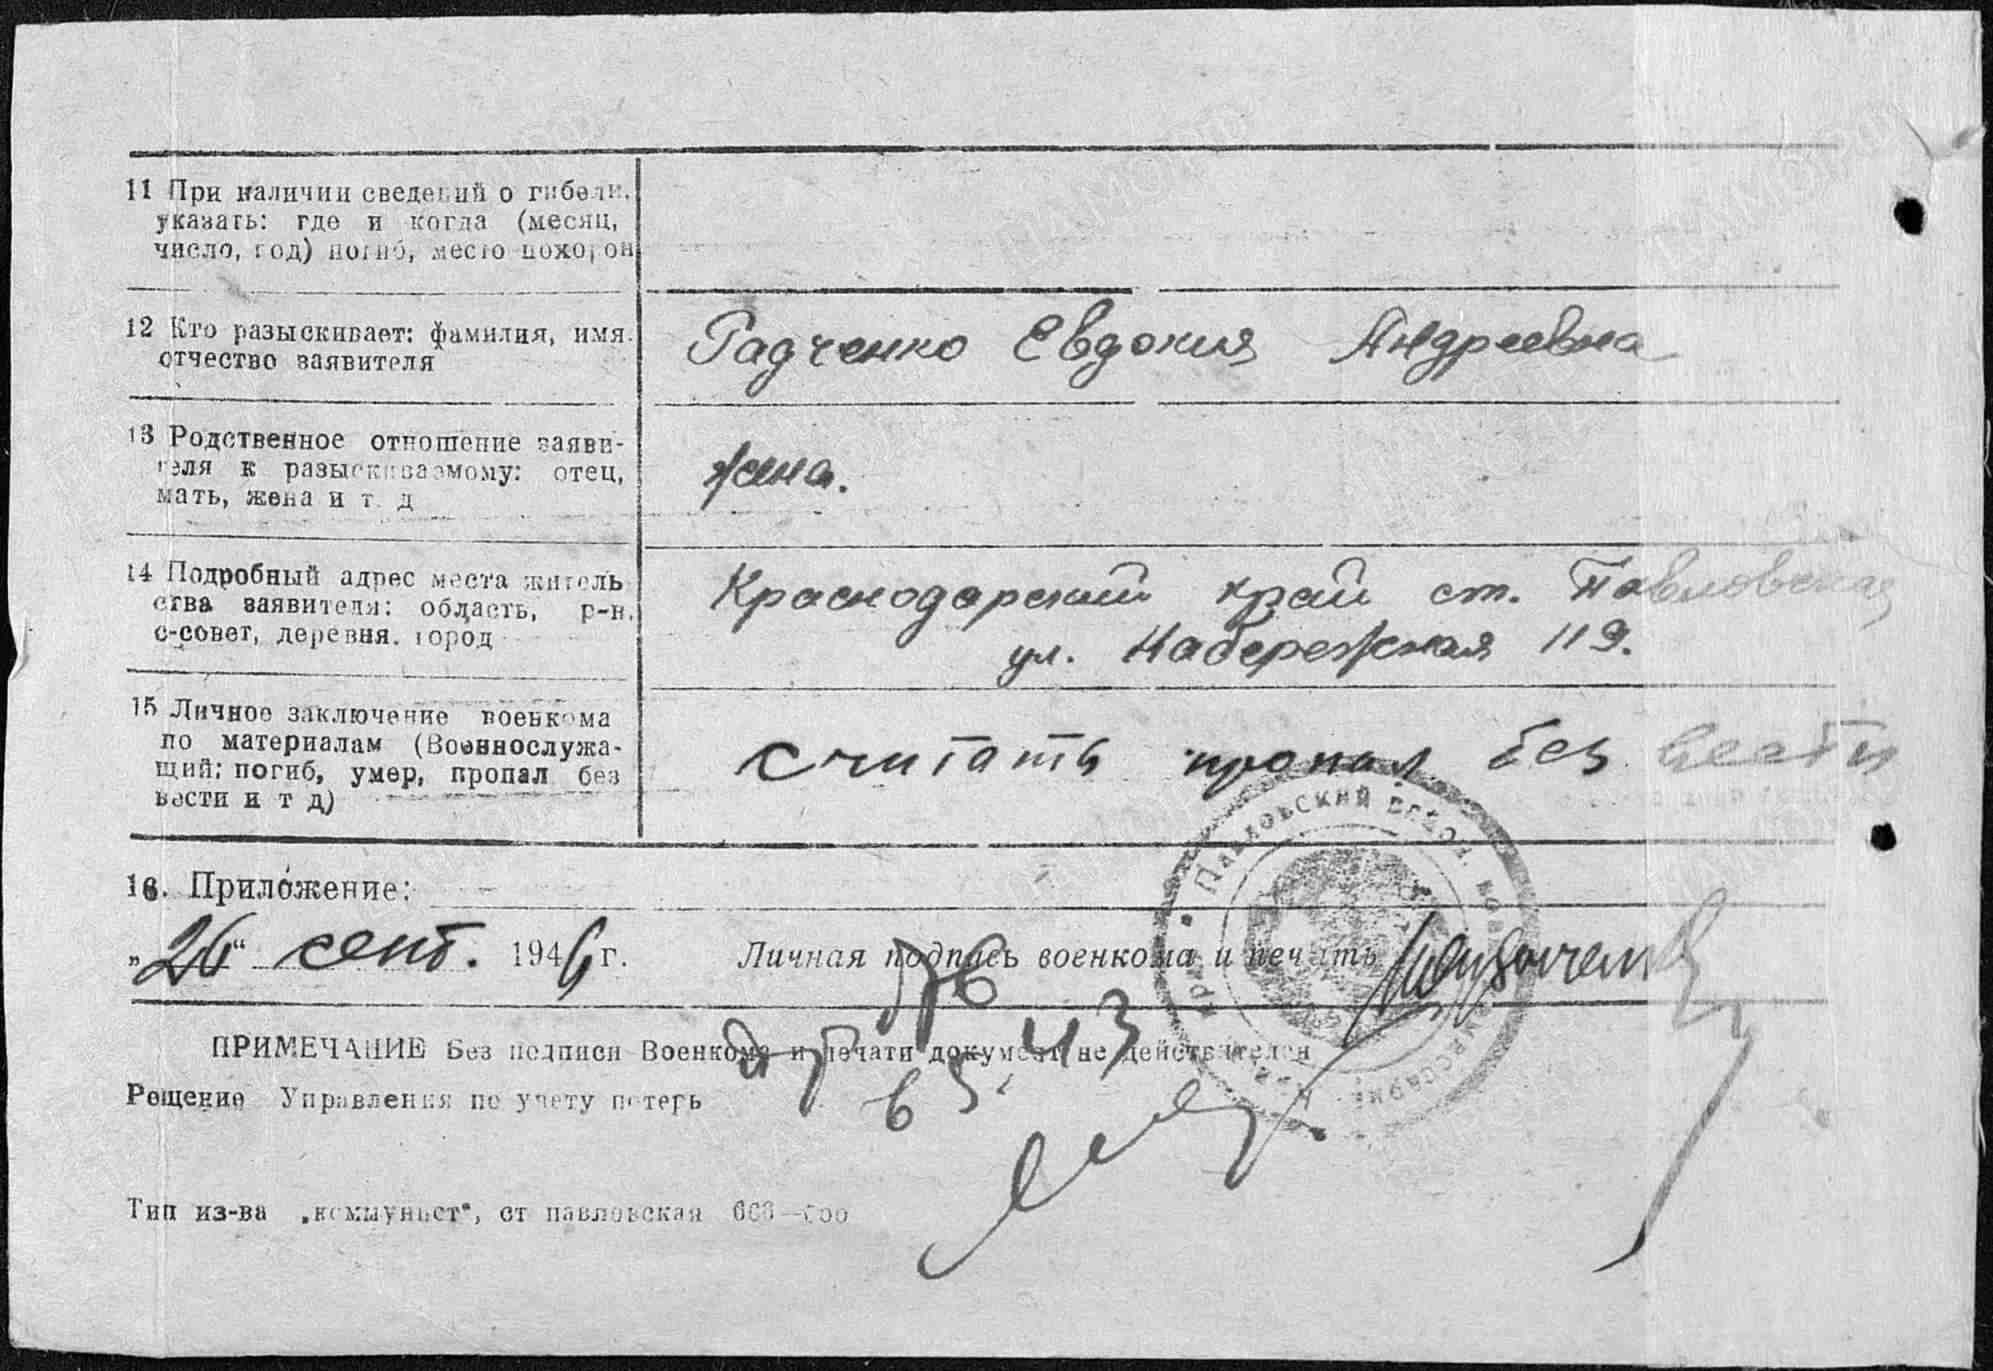 11 При наличии сведений о гибели,
указать: где и когда (месяц,
число, год) погиб, место похорон
12 Кто разыскивает: фамилия, имя.
отчество заявителя
Радченко Евдокия Андреевна
13 Родственное отношение заяви-
теля к разыскиваемому: отец,
мать, жена и т. д
жена.
14 Подробный адрес места житель
ства заявителя: область, р-н.
с-совет, деревня. город
Краснодарский край ст. Павловская
ул. Набережная 119.
15 Личное заключение военкома
по материалам (Военнослужа-
щий: погиб, умер, пропал без
вести и т д)
считать пропал без вести
16. Приложение:
„26“ сент. 1946 г. Личная подпись военкома и печать
ПРИМЕЧАНИЕ Без подписи Военкома и печати документ не действителен
Рещение Управления по учету потерь
43
Тип из-ва „коммунист“, ст павловская
Павловский